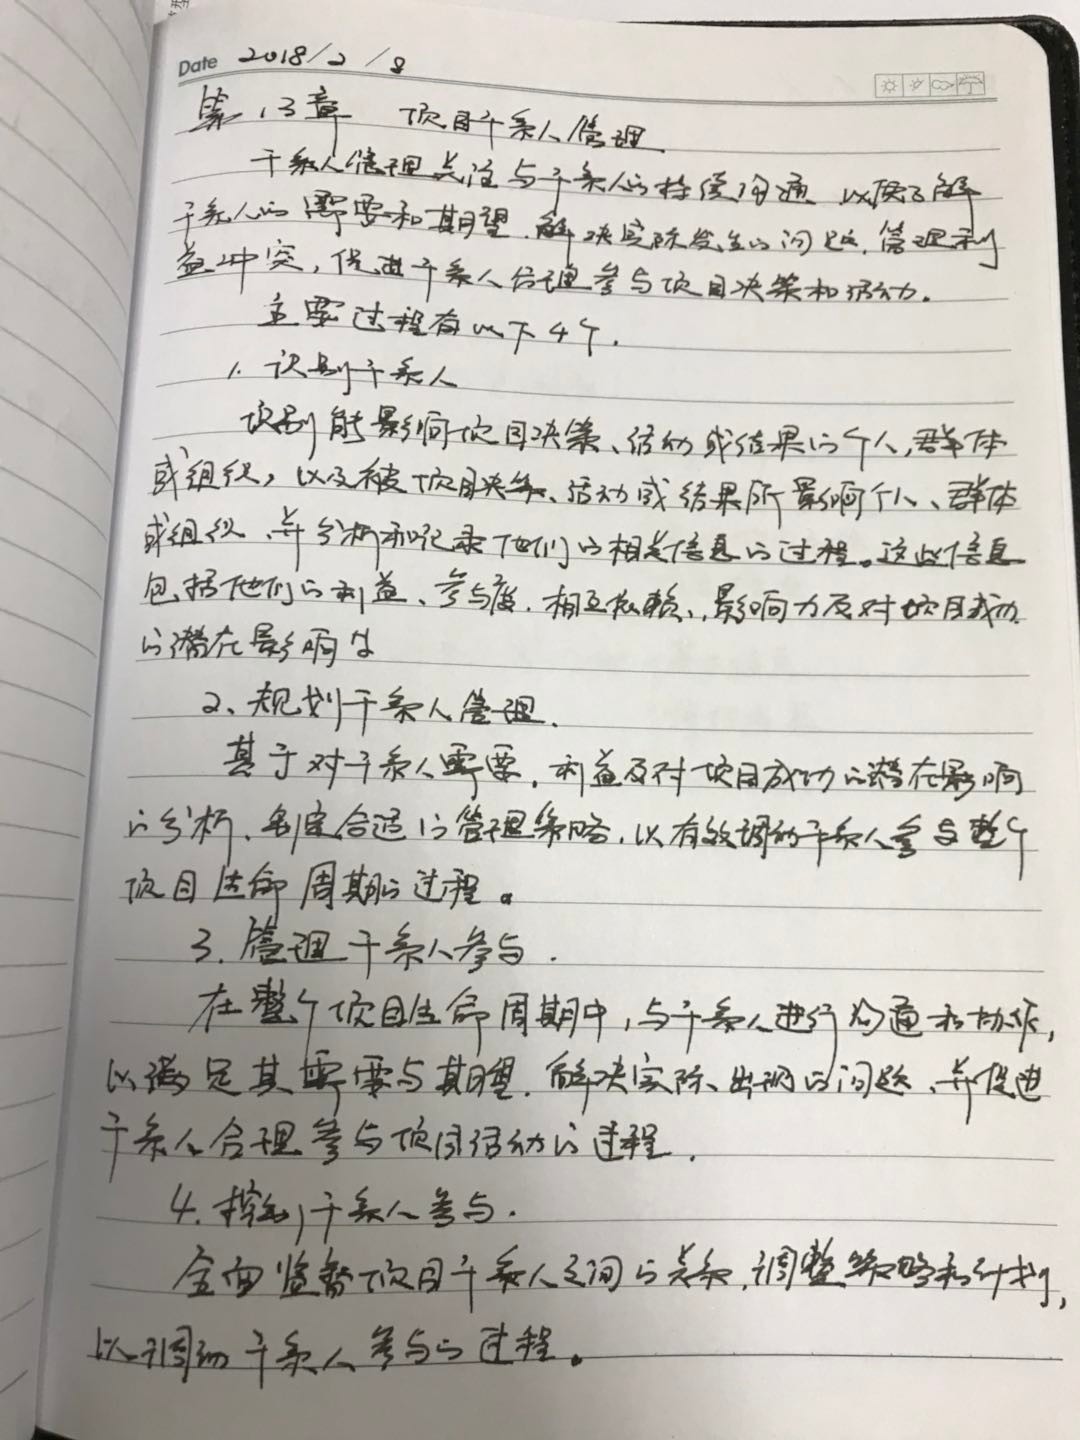 Date 2018/2/8
第13章 项目干系人管理
干系人管理关注与干系人的持续沟通,以便了解
干系人的需要和期望,解决实际发生的问题,管理利
益冲突,促进干系人合理参与项目决策和活动。
主要过程有以下4个.
1.识别干系人
识别能影响项目决策、活动或结果的个人,群体
或组织,以及被项目决策、活动或结果所影响个人、群体
或组织,并分析和记录他们的相关信息的过程。这些信息
包括他们的利益、参与度,相互依赖、影响力及对项目成功
的潜在影响等
2、规划干系人管理.
基于对干系人需要,利益及对项目成功的潜在影响
的分析,制定合适的管理策略,以有效调动干系人参与整个
项目生命周期的过程。
3.管理干系人参与.
在整个项目生命周期中,与干系人进行沟通和协作,
以满足其需要与期望,解决实际出现的问题,并促进
干系人合理参与项目活动的过程.
4.控制干系人参与.
全面监督项目干系人之间的关系,调整策略和计划,
以调动干系人参与的过程。